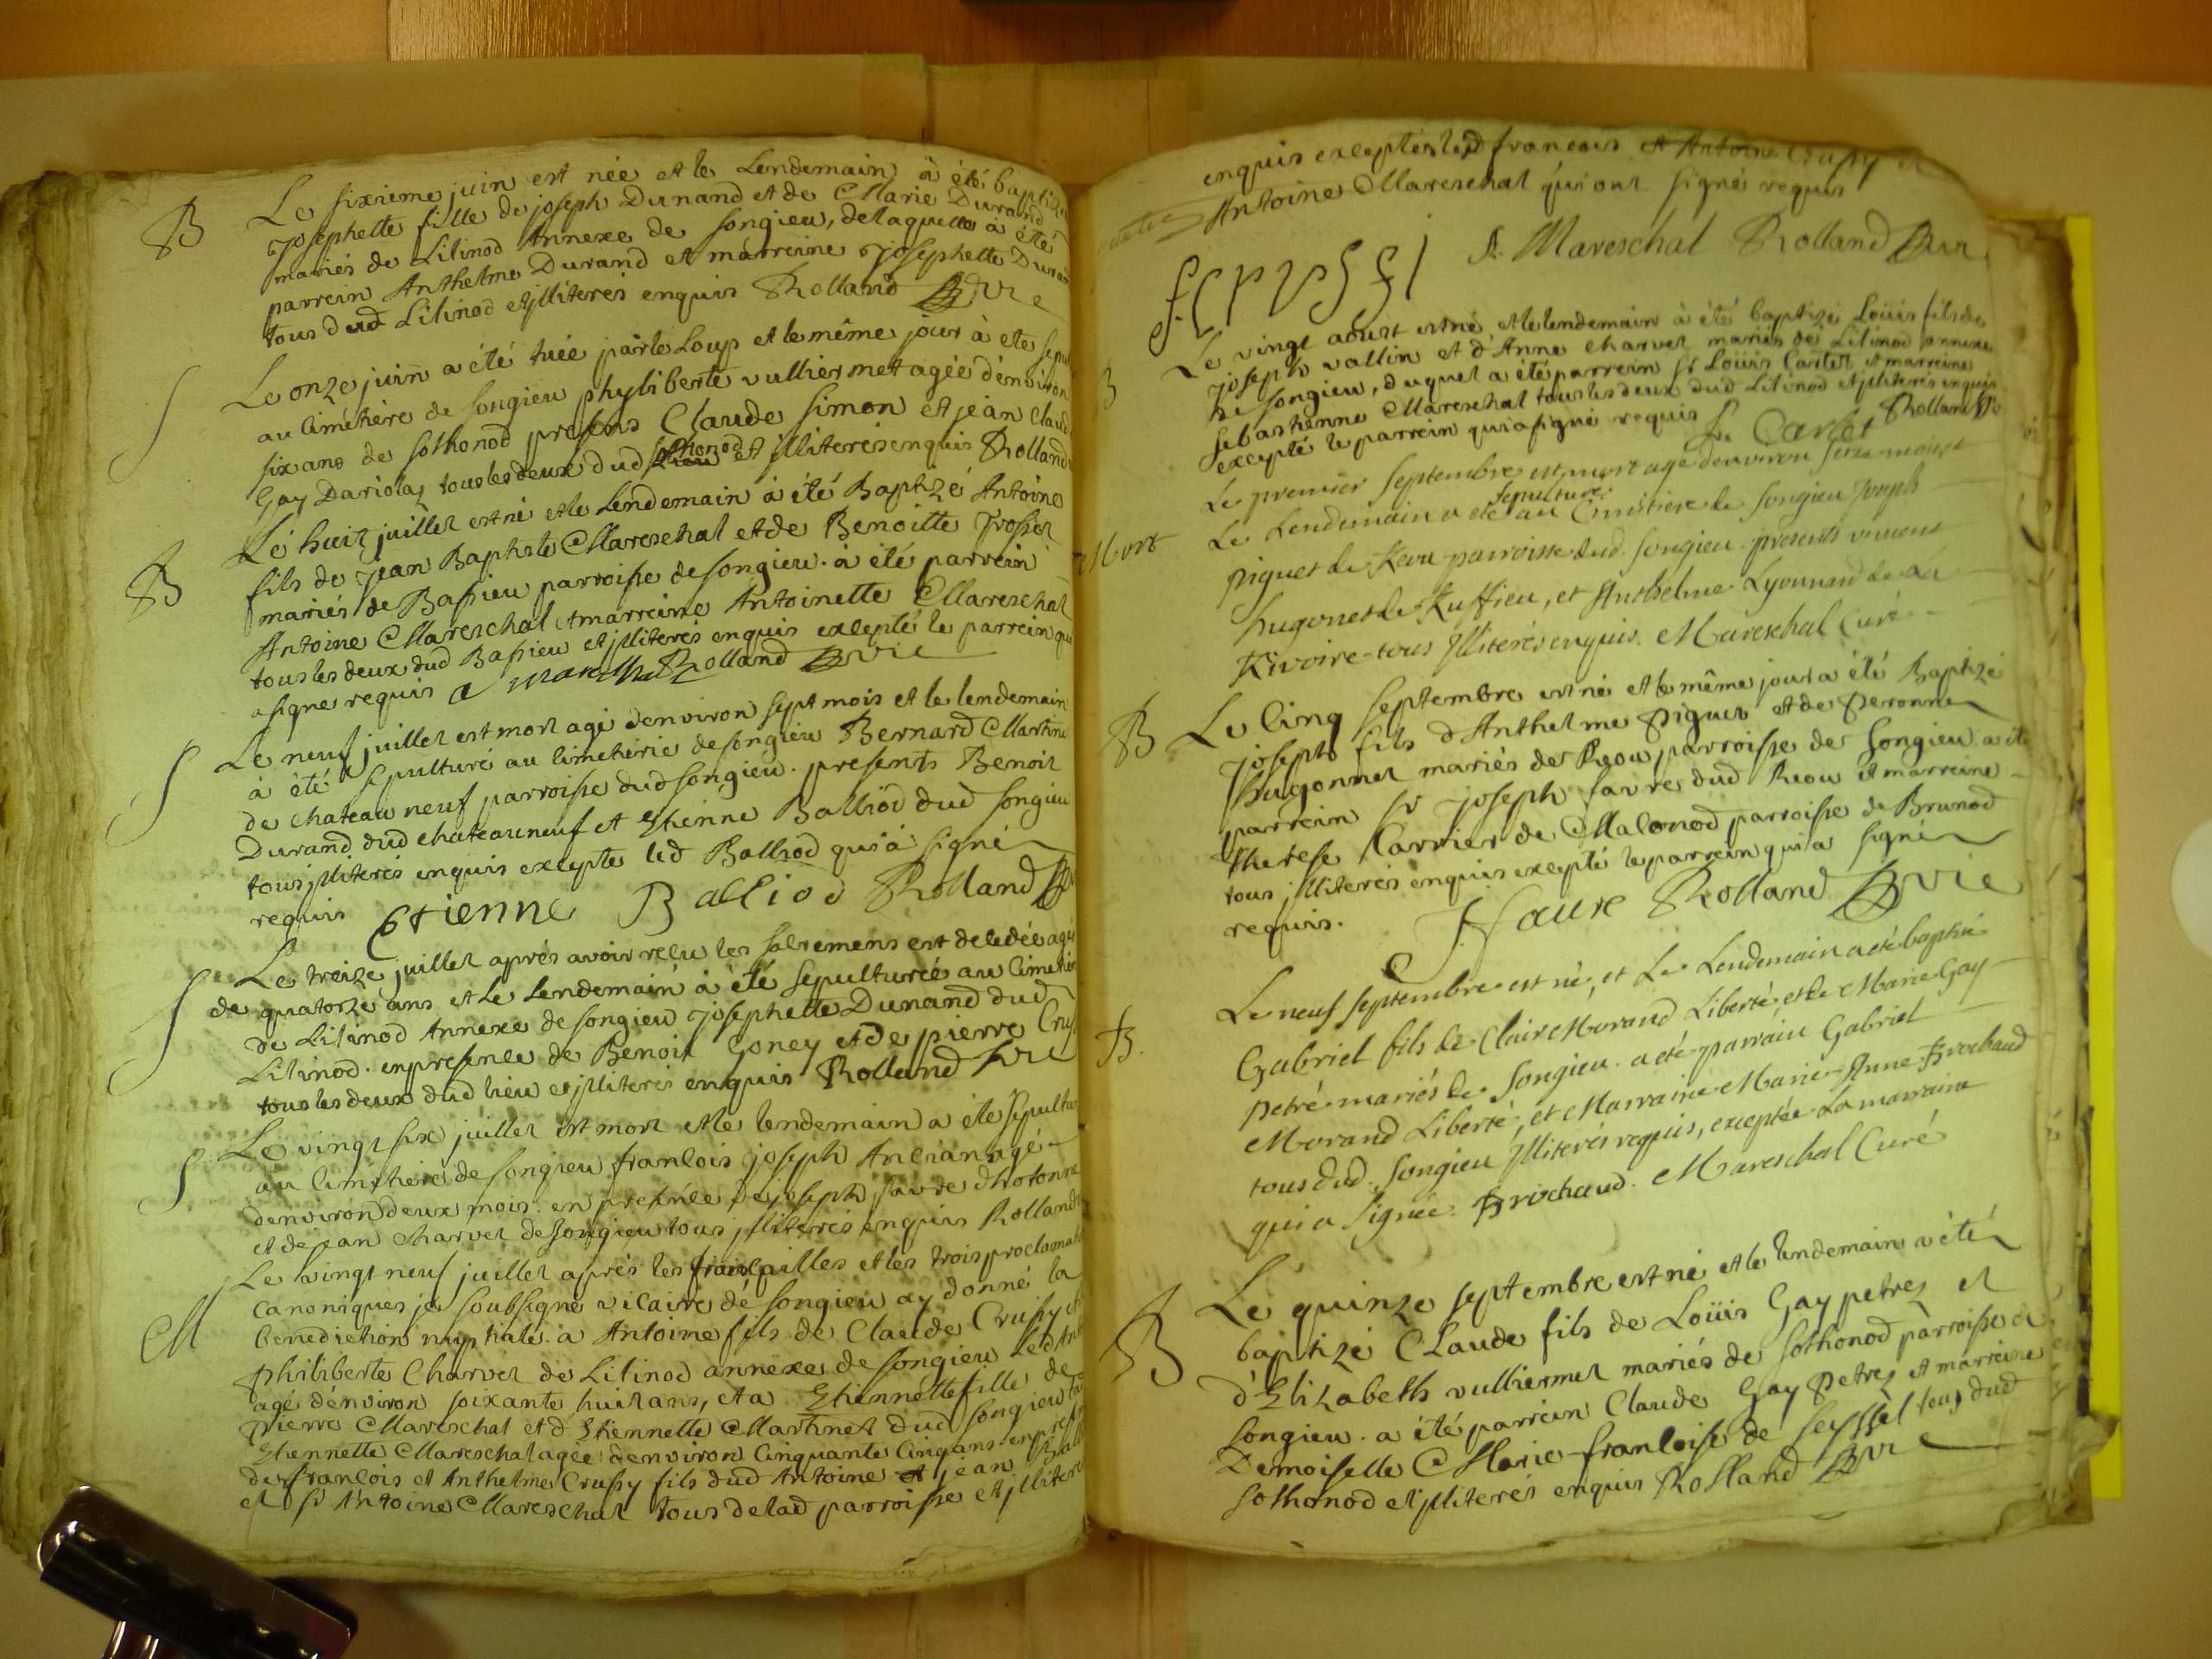 B
Le sixieme juin est née et le Lendemain à été baptizée
Josephette fille de joseph Dunand et de Marie Durand
mariés de Lilinod Annexe de songieu, delaquelle à été
parrein Anthelme Durand et marreine Josephette Durand
tous dud Lilinod et jlliterés enquis Rolland vic
S
Le onze juin a été tuée par le Loup et le même jour à ete sepul
au cimétière de songieu phyliberte vulliermet agée d'environ
six ans de sothonod presens Claude simon et jean Claude
Gay Dariolaz tous les deux dud sothonod et jlliterés enquis Rolland
B
Le huit juillet est né et le Lendemain à été Baptizé Antoine
fils de Jean Baptiste Mareschal et de Benoitte
mariés de Bassieu parroisse de songieu. à été parrein
Antoine Mareschal et marreine Antoinette Mareschal
tous les deux dud Bassieu et jlliterés enquis excepté le parrein qui
a signe requis a Rolland vic
S
Le neuf juillet est mort agé denviron sept mois et le lendemain
à été sepulturé au cimetiére de songieu Bernard Martine
de chateau neuf parroisse dud songieu. presents Benoit
Durand dud chateauneuf et Etienne Balliod dud songieu
tous jlliterés enquis excepte led Balliod qui à signé
requis Etienne Balliod Rolland
S
Le treize juillet aprés avoir reçu les sacremens est decedée agée
de quatorze ans et le Lendemain à été sepulturée au cimetier
de Lilinod Annexe de songieu Josephette Dunand dud
Lilinod. en presence de Benoit Goney et de pierre Crus
tous les deux dud lieu et jlliteres enquis Rolland vic
S
Le vingt six juillet est mort et le lendemain a été sepultu
au cimétiere de songieu francois joseph Ancian agé
denviron deux mois. en presence de joseph favre dhotonne
et de jean charvet de songieu tous jlliterés enquis Rolland
M
Le vingt neuf juillet aprés les fiançailles et les trois proclamat
canoniques je soubsigné vicaire de songieu ay donné la
benediction nuptiale à Antoine fils de Claude Crussy et
philiberte Charvet de Lilinod annexe de songieu led Ant
agé d'environ soixante huit ans, et a Etiennette fille de
pierre Mareschal et d Etiennette Martinet dud songieu
Etiennette Mareschal agée denviron cinquante cinq ans. en pres
de françois et Anthelme Crussy fils dud Antoine et jean Ball
et sr Antoine Mareschal tous de lad parroisse et jlliter
enquis exceptés led francois et Antoine Crussy et
Antoine Mareschal qui ont signé requis
f crussi A. Mareschal Rolland vic
B
Le vingt aoust est né et le lendemain à été baptizé Loüis fils de
joseph vallin et d'Anne charvet mariés de Lilinod annexe
de songieu, duquel a été parrein sr Loüis Carlet et marreine
sebastienne Mareschal tous les deux dud Lilinod et jlliterés enquis
excepté le parrein qui a signé requis L. Carlet Rolland vic
Mort
Le premier septembre est mort age denviron seize mois et
Le Lendemain a ete sepulturé au Cimitiere de songieu Joseph
piguet de Reou parroisse dud. songieu. presents vincent
hugonet de Ruffieu, et Anthelme Lyonnard de La
Rivoire tous Jlliterés enquis. Mareschal Curé
B
Le cinq septembre est né et le même jour a été Baptizé
joseph fils d'Anthelme piguet et de peronne
hugonnet mariés de Reou parroisse de songieu. a été
parrein sr joseph favre dud Reou et marreine
therese Carrier de Malonod parroisse de Brenod
tous jlliterés enquis excepté le parrein qui a signé
requis. J favre Rolland vic
B.
Le neuf septembre est né, et Le Lendemain a eté baptisé
Gabriel fils de Clair Morand Liberté, et de Marie Gay
petré mariés de songieu. a eté parrain Gabriel
Morand Liberté, et Marraine Marie Anne Brochaud
tous dud. songieu Jlliterés requis, exceptée La marraine
qui a signée. Brochaud. Mareschal Curé
B
Le quinze septembre est né et le lendemain a été
baptizé Claude fils de Loüis Gay petrez et
d'Elizabeth vulliermet mariés de sothonod parroisse de
songieu. a été parrein Claude Gay petrez et marreine
Demoiselle Marie francoise de seyssel tous dud
sothonod et jlliterés enquis Rolland vic